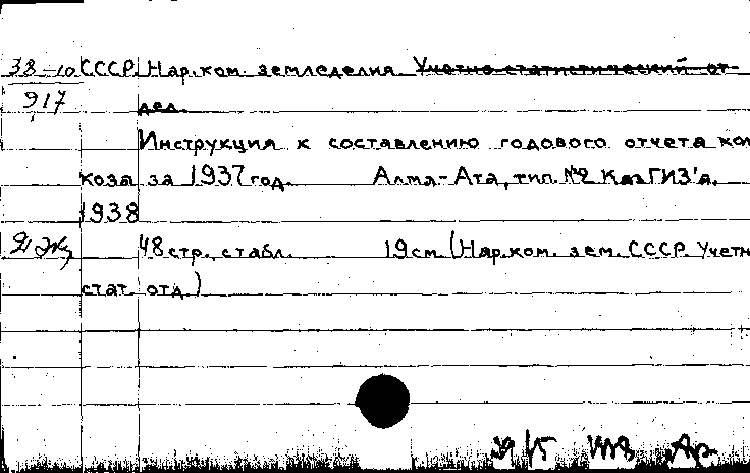 38-10 СССР. Нар.ком. земледелия. Учетно-статистический от-
917 дел.
Инструкция к составлению годового отчета кол
хоза за 1937 год. Алма-Ата, тип. №2 КазГИЗ'а,
1938
48 стр. с табл. 19 см. (Нар.ком. зем. СССР. Учетн
стат. отд.)